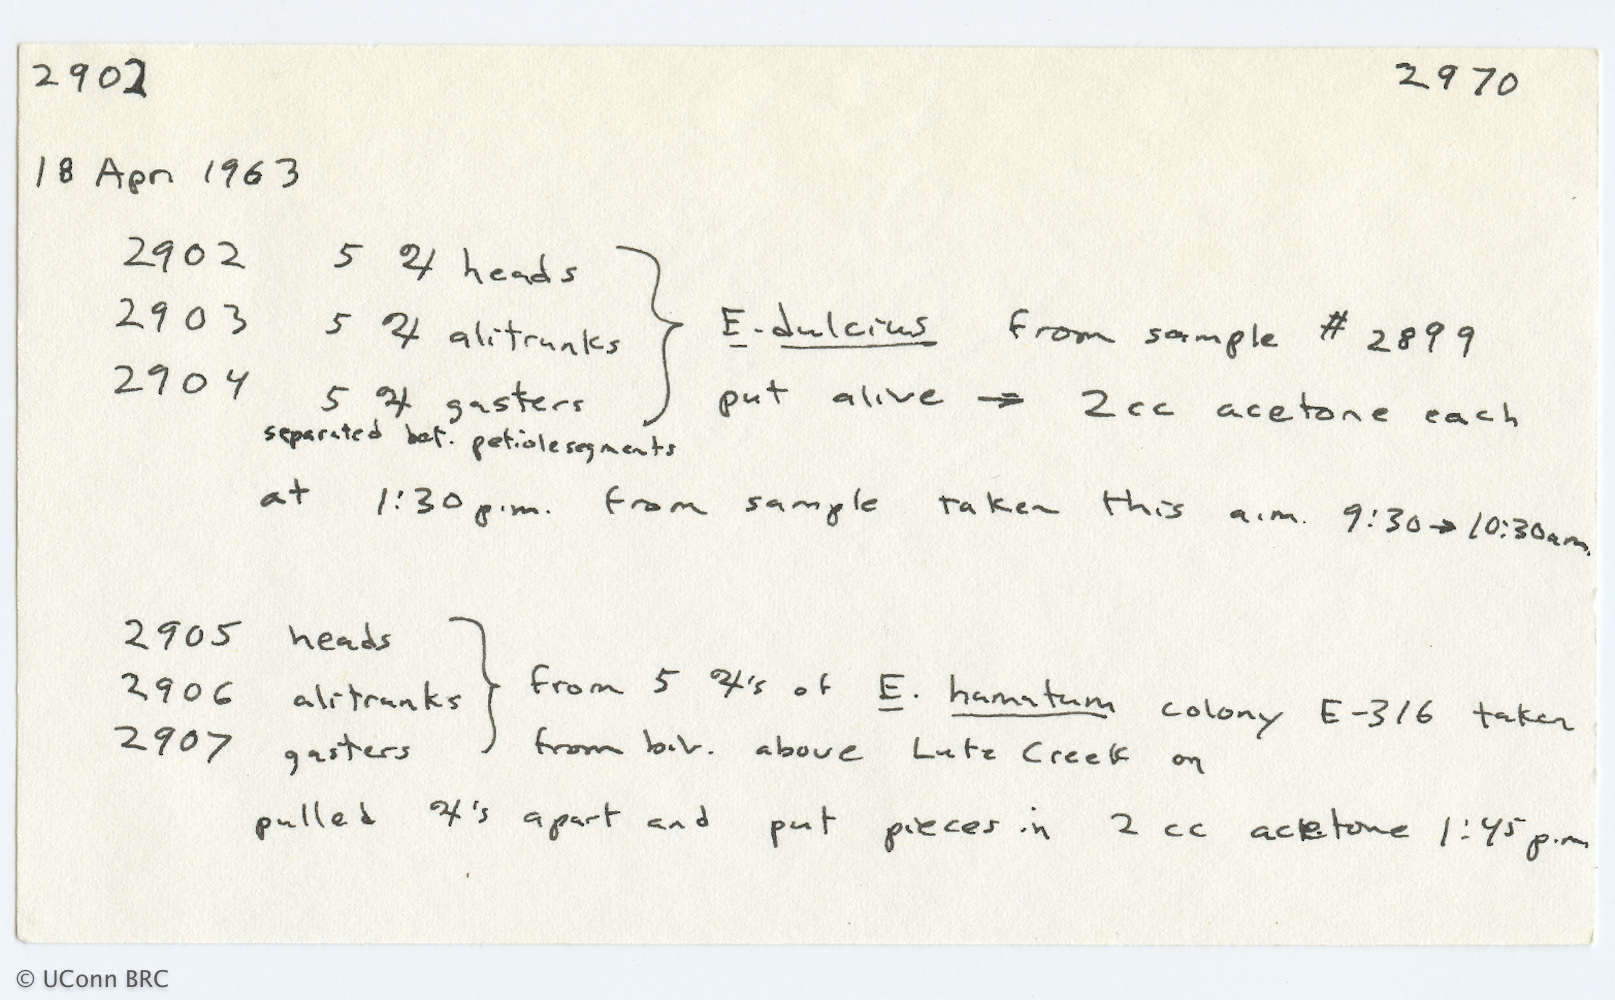 2902 2970
18 Apr 1963
2902 5 ☿ heads
2903 5 ☿ alitrunks E. dulcius from sample # 2899
2904 5 ☿ gasters put alive → 2cc acetone each
separated bet. petiole segments
at 1:30 p.m. from sample taken this a.m. 9:30 → 10:30 am.
2905 heads
2906 alitrunks from 5 ☿'s of E. hamatum colony E-316 taken
2907 gasters from biv. above Lutz Creek on
pulled ☿'s apart and put pieces in 2 cc acetone 1:45 p.m
© UConn BRC